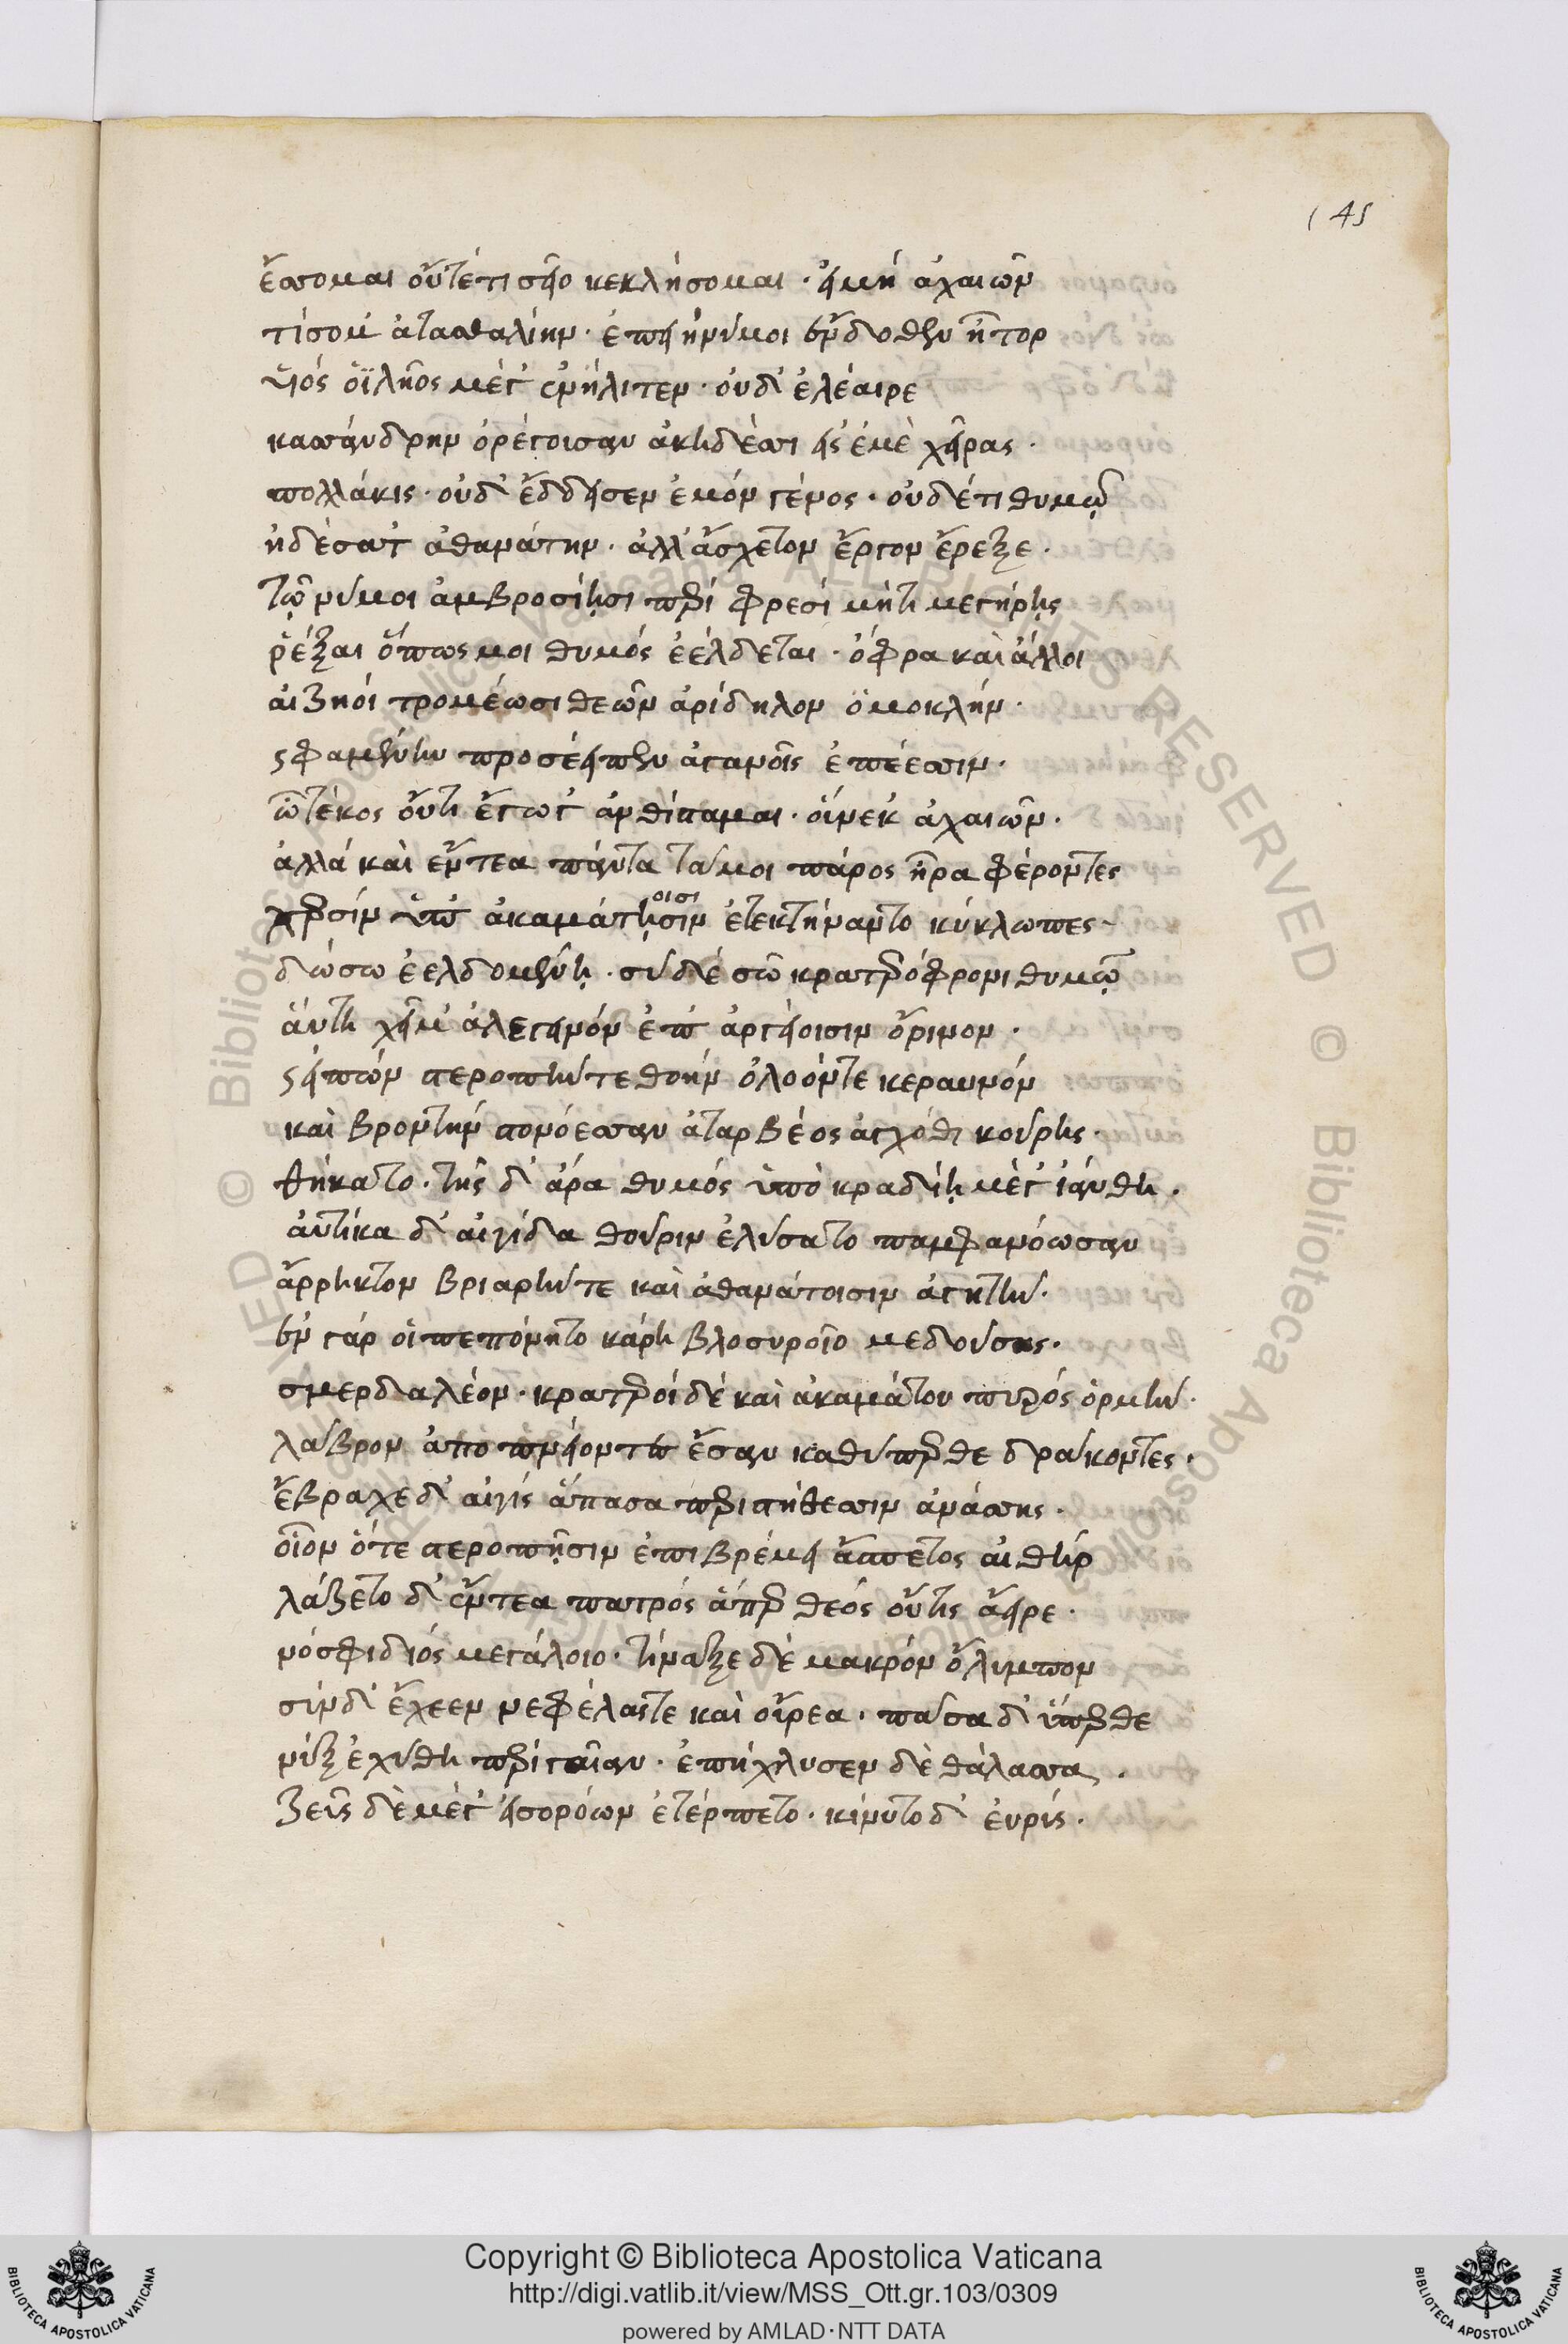 145
ἔσσομαι οὔτ' ἔτι σεῖο κεκλήσομαι · εἰ μὴ ἀχαιῶν
τίσομ' ἀτασθαλίην · ἐπειὴ νύ μοι ἔνδοθεν ἦτορ
υἱός ὀϊλῆος μέγ' ἐνήλιτεν · οὐδ' ἐλέαιρε
κασσάνδρην ὀρέγουσαν ἀκηδέσι εἰς ἐμὲ χεῖρας ·
πολλάκις · οὐδ' ἔδδεισεν ἐμόν γένος · οὐδέ τι θυμῷ
ἠδέσατ' ἀθανάτην · ἀλλ' ἄσχετον ἔργον ἔρεξε ·
τῷ νύ μοι ἀμβροσίῃσι περί φρεσί μήτι μεγήρῃς
ῥέξαι ὅπως μοι θυμός ἐέλδεται · ὄφρα καὶ ἄλλοι
αἰζηοί τρομέωσι θεῶν ἀρίδηλον ὁμοκλήν ·
ςφαμένην προσέειπεν ἀγανοῖς ἐπέεσσιν ·
ὦ τέκος οὔτι ἔγωγ' ἀνθίσταμαι · εἵνεκ' ἀχαιῶν ·
ἀλλά καὶ ἔντεα πάντα τά μοι πάρος ἦρα φέροντες
χερσίν ὑπ' ἀκαμάτῃσιν ἐτεκτήναντο κύκλωπες
οισι
δώσω ἐελδομένῃ · σύ δέ σῷ κρατερόφρονι θυμῷ
αὐτὴ χεῖμ' ἀλεγεινόν ἐπ' ἀργείοισιν ὄρινον ·
ςειπών στεροπήν τε θοήν ὀλοόν τε κεραυνόν
καὶ βροντήν στονόεσσαν ἀταρβέος ἀγχόθι κούρης ·
θήκατο · τῆς δ' ἄρα θυμός ὑπὸ κραδίῃ μέγ' ἰάνθη ·
αὐτίκα δ' αἰγίδα θοῦριν ἐλύσατο παμφανόωσαν
ἄρρηκτον βριαρήν τε καὶ ἀθανάτοισιν ἀγητήν ·
ἐν γάρ οἱ πεπόνητο κάρη βλοσυροῖο μεδούσης ·
σμερδαλέον · κρατεροί δέ καὶ ἀκαμάτου πυρός ὁρμήν ·
λάβρον ἀποπνείοντες ἔσαν καθύπερθε δράκοντες ·
ἔβραχε δ' αἰγίς ἅπασα περι στήθεσσιν ἀνάσσης ·
οἷον ὅτε στεροπῇσιν ἐπιβρέμει ἄσπετος αἰθήρ
λάζετο δ' ἔντεα πατρός ἅπερ θεός οὔτις ἄειρε ·
νόσφι διός μεγάλοιο · τίναξε δὲ μακρόν ὄλυμπον
σύν δ' ἔχεεν νεφέλας τε καὶ οὔρεα · πᾶσα δ' ὕπερθε
νύξ ἐχύθη περί γαῖαν · ἐπήχλυσεν δὲ θάλασσα ·
ζεύς δὲ μέγ' εἰσορόων ἐτέρπετο · κίνυτο δ' εὐρύς ·
Copyright © Biblioteca Apostolica Vaticana
http://digi.vatlib.it/view/MSS_Ott.gr.103/0309
powered by AMLAD·NTT DATA